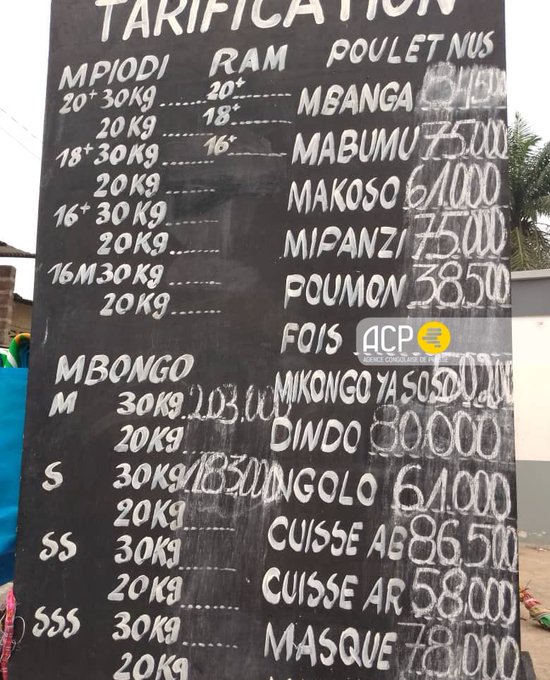 TARIFICATION
MPIODI
20+ 30Kg
20Kg
18+ 30Kg
20Kg
16+ 30Kg
20Kg
16M 30Kg
20Kg
MBONGO
M 30Kg 203.000
20Kg
S 30Kg 183000
20Kg
SS 30Kg
20Kg
SSS 30Kg
20Kg
RAM
20+
18+
16+
POULET NUS
MBANGA
MABUMU 75.000
MAKOSO 61.000
MIPANZI 75.000
POUMON 38.500
FOIS
MIKONGO YA SOSO
DINDO 80.000
NGOLO 61.000
CUISSE AB 86.500
CUISSE AR 58.000
MASQUE 78.000
ACP
AGENCE CONGOLAISE DE PRESSE